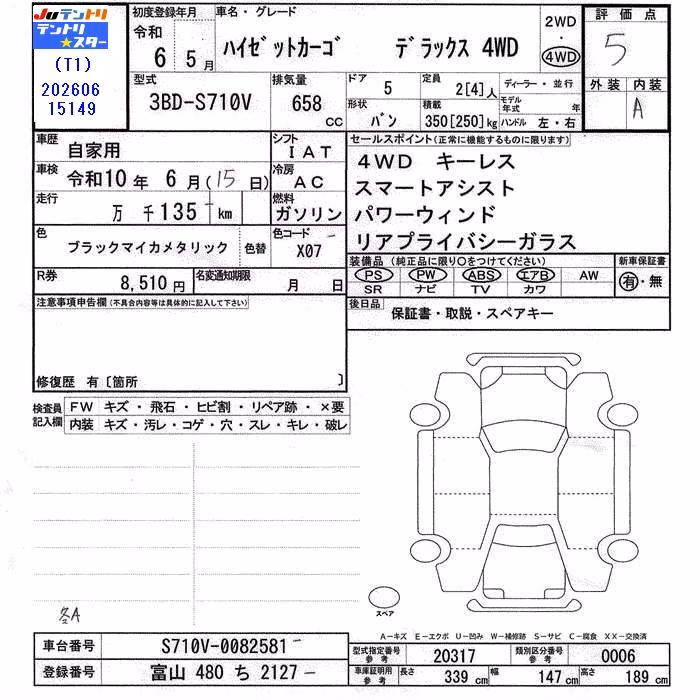 Juテントリ
テントリ★スター
(T1)
202606
15149
初度登録年月
令和
6 5月
車名・グレード
ハイゼットカーゴ デラックス 4WD
2WD
・
4WD
評価点
5
外装 内装
A
型式
3BD-S710V
排気量
658 cc
ドア
5
形状
バン
定員
2[4]人
積載
350[250]kg
ディーラー・並行
モデル年式 年
ハンドル 左・右
車歴
自家用
シフト
IAT
車検
令和10年 6月(15日)
冷房
AC
走行
万 千135 km
燃料
ガソリン
色
ブラックマイカメタリック
色替
色コード
X07
R券
8,510円
名変通知期限
月 日
セールスポイント(正常に機能するものに限ります)
4WD キーレス
スマートアシスト
パワーウィンド
リアプライバシーガラス
装備品(純正品に限り○をつけてください)
PS PW ABS エアB AW
SR ナビ TV カワ
新車保証書
有・無
後日品
保証書・取説・スペアキー
注意事項申告欄(不具合内容等は具体的に記入して下さい)
修復歴 有〔箇所 〕
検査員記入欄
FW キズ・飛石・ヒビ割・リペア跡・×要
内装 キズ・汚レ・コゲ・穴・スレ・キレ・破レ
冬A
スペア
A－キズ E－エクボ U－凹み W－補修跡 S－サビ C－腐食 XX－交換済
車台番号
S710V-0082581
登録番号
富山 480 ち 2127
型式指定番号
参考
20317
類別区分番号
参考
0006
車庫証明用
参考
長さ
339 cm
幅
147 cm
高さ
189 cm